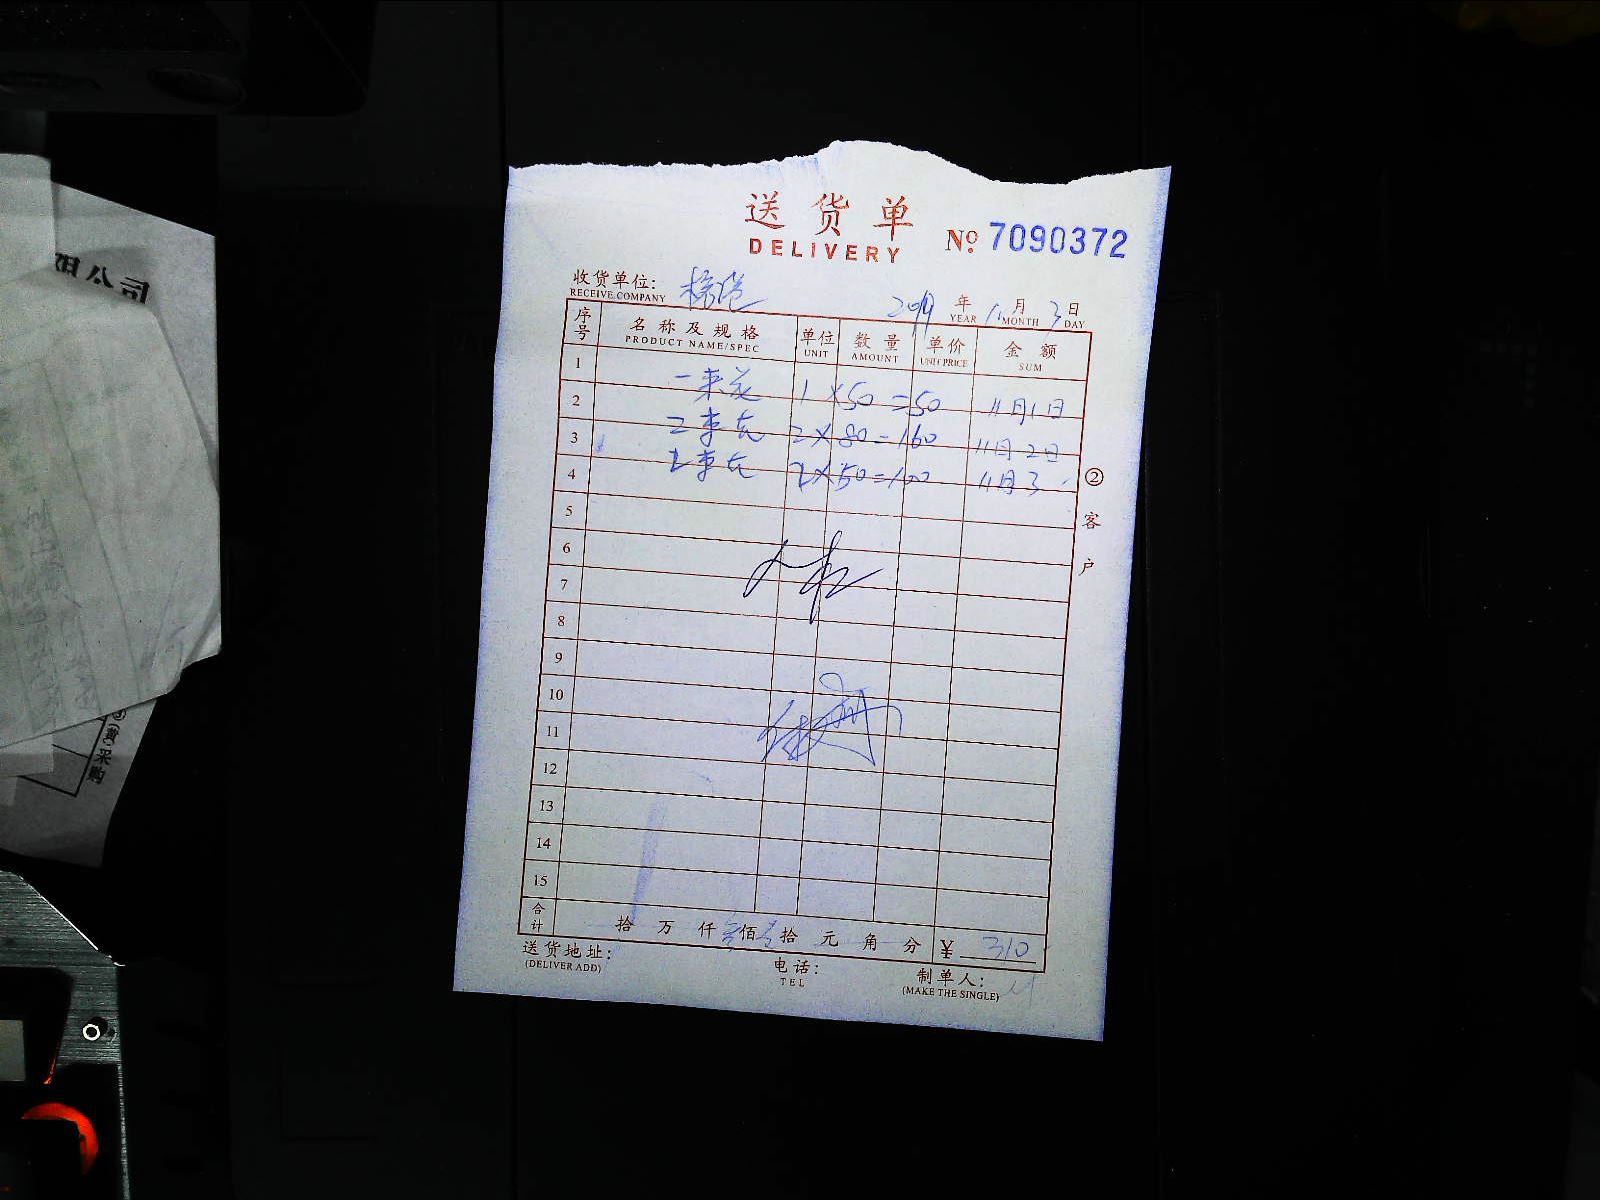 送货单
DELIVERY
№ 7090372
收货单位:
RECEIVE COMPANY
2019 年 11 月 3 日
YEAR MONTH DAY
序号 名称及规格 单位 数量 单价 金额
PRODUCT NAME/SPEC UNIT AMOUNT UNIT PRICE SUM
1 一束花 1×50=50 11月1日
2 2束花 2×80=160 11月2日
3 2束花 2×50=100 11月3
4
5
6
7
8
9
10
11
12
13
14
15
合计 拾 万 仟 叁佰 壹拾 元 角 分 ¥ 310
送货地址: 电话: 制单人:
(DELIVER ADD) TEL (MAKE THE SINGLE)
②客户
限公司
(黄)采购